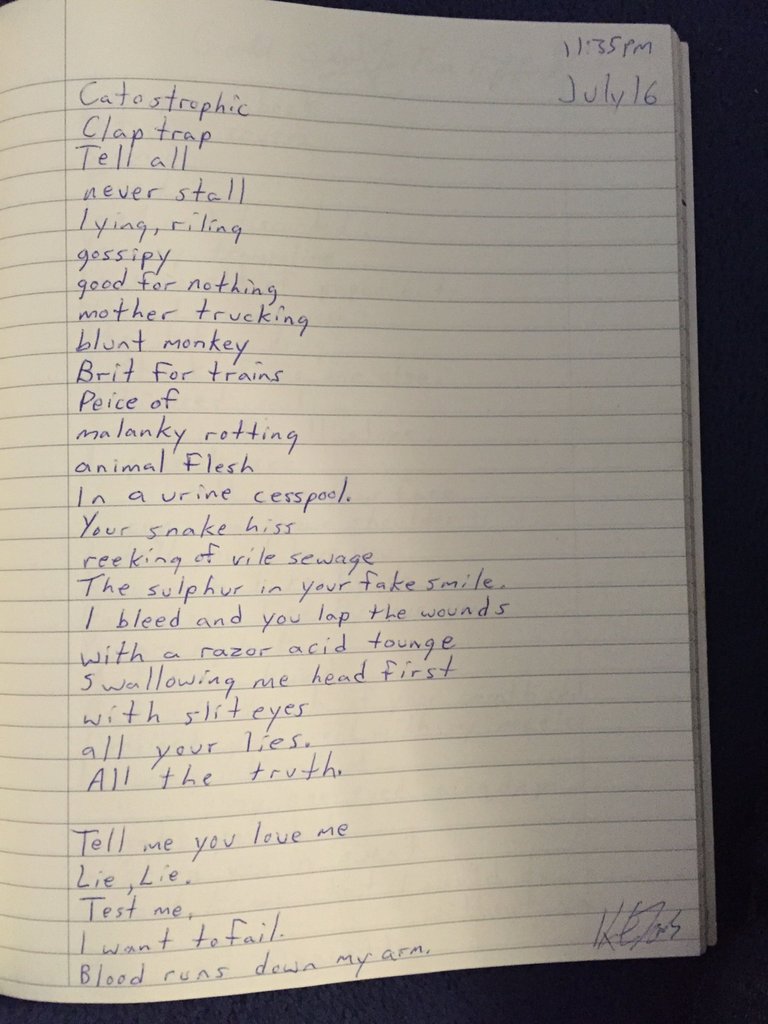 11:35pm
July 16
Catostrophic
Clap trap
Tell all
never stall
lying, riling
gossipy
good for nothing
mother trucking
blunt monkey
Brit for trains
Peice of
malanky rotting
animal flesh
In a urine cesspool.
Your snake hiss
reeking of vile sewage
The sulphur in your fake smile.
I bleed and you lap the wounds
with a razor acid tounge
Swallowing me head first
with slit eyes
all your lies.
All the truth.
Tell me you love me
Lie, Lie.
Test me.
I want to fail.
Blood runs down my arm.